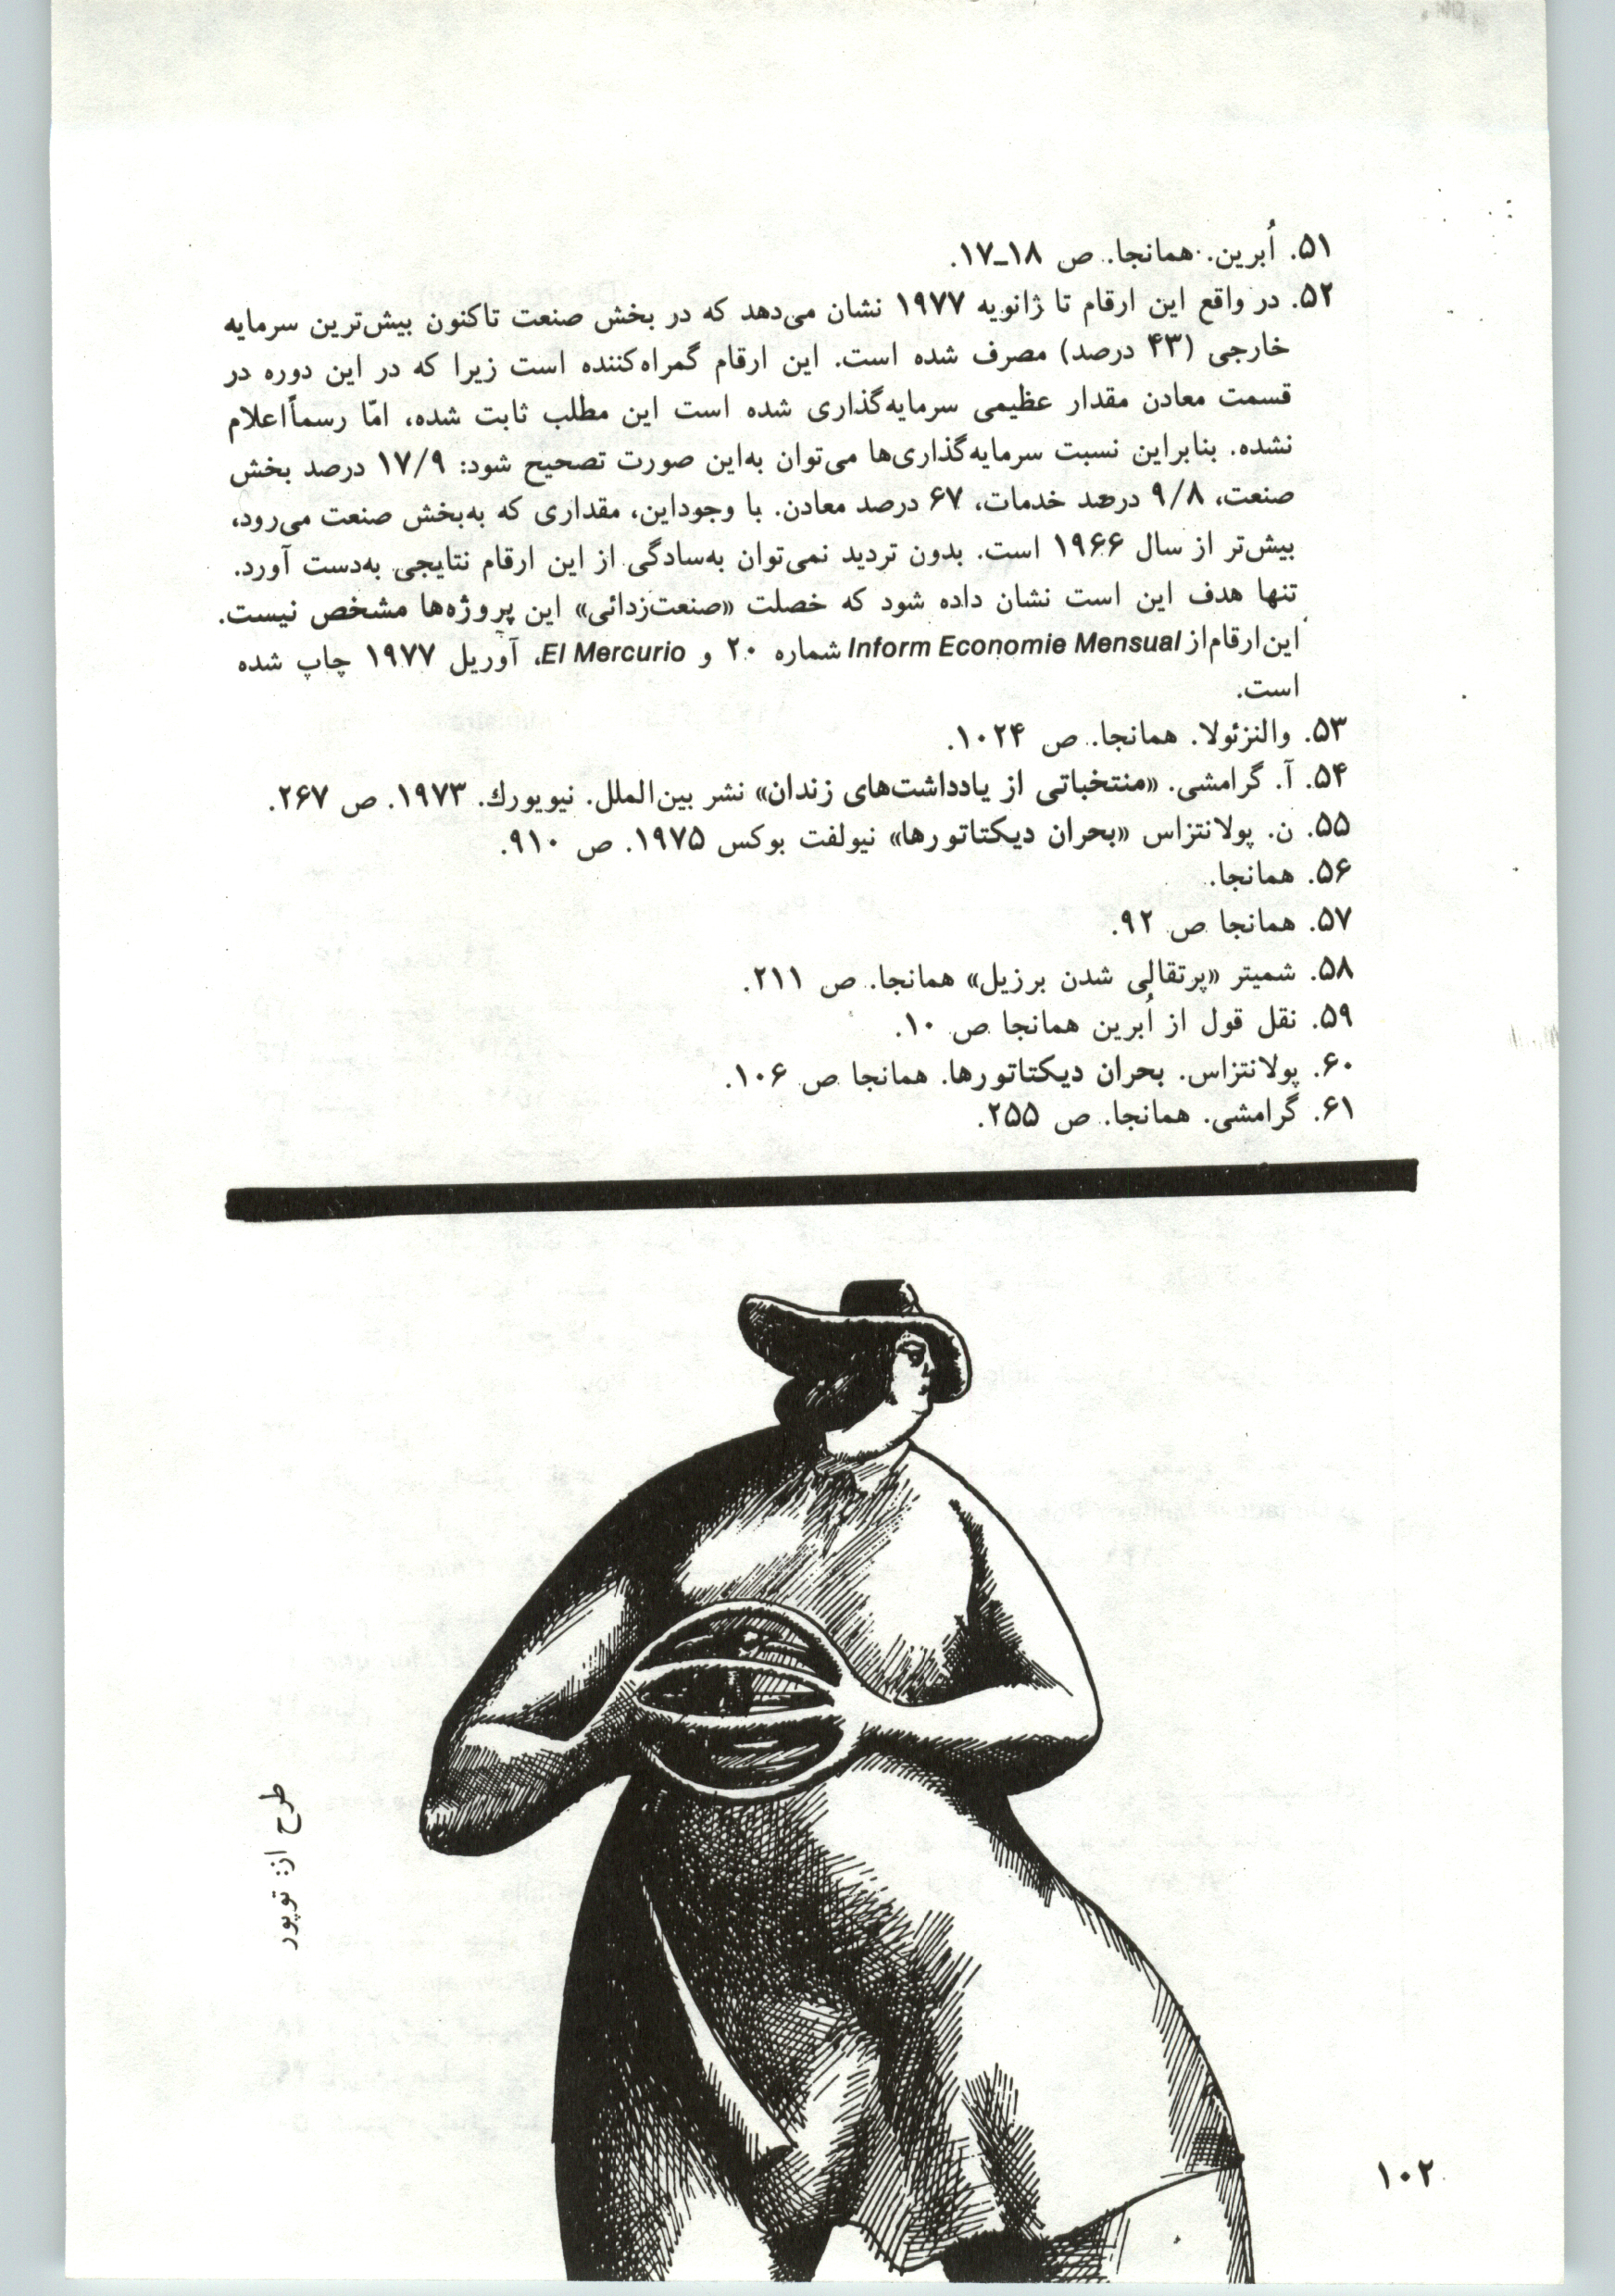 ۵۱. اُبرین. همانجا. ص ۱۸ـ۱۷.
۵۲. در واقع این ارقام تا ژانویه ۱۹۷۷ نشان می‌دهد که در بخش صنعت تاکنون بیش‌ترین سرمایه
خارجی (۴۳ درصد) مصرف شده است. این ارقام گمراه‌کننده است زیرا که در این دوره در
قسمت معادن مقدار عظیمی سرمایه‌گذاری شده است این مطلب ثابت شده، امّا رسماً اعلام
نشده. بنابراین نسبت سرمایه‌گذاری‌ها می‌توان به‌این صورت تصحیح شود: ۱۷/۹ درصد بخش
صنعت، ۹/۸ درصد خدمات، ۶۷ درصد معادن. با وجوداین، مقداری که به‌بخش صنعت می‌رود،
بیش‌تر از سال ۱۹۶۶ است. بدون تردید نمی‌توان به‌سادگی از این ارقام نتایجی به‌دست آورد.
تنها هدف این است نشان داده شود که خصلت «صنعت‌زدائی» این پروژه‌ها مشخص نیست.
این‌ارقام‌از Inform Economie Mensual شماره ۲۰ و El Mercurio، آوریل ۱۹۷۷ چاپ شده
است.
۵۳. والنزئولا. همانجا. ص ۱۰۲۴.
۵۴. آ. گرامشی. «منتخباتی از یادداشت‌های زندان» نشر بین‌الملل. نیویورك. ۱۹۷۳. ص ۲۶۷.
۵۵. ن. پولانتزاس «بحران دیکتاتورها» نیولفت بوکس ۱۹۷۵. ص ۹۱۰.
۵۶. همانجا.
۵۷. همانجا ص ۹۲.
۵۸. شمیتر «پرتقالی شدن برزیل» همانجا. ص ۲۱۱.
۵۹. نقل قول از اُبرین همانجا ص ۱۰.
۶۰. پولانتزاس. بحران دیکتاتورها. همانجا ص ۱۰۶.
۶۱. گرامشی. همانجا. ص ۲۵۵.
طرح از: توپور
۱۰۲